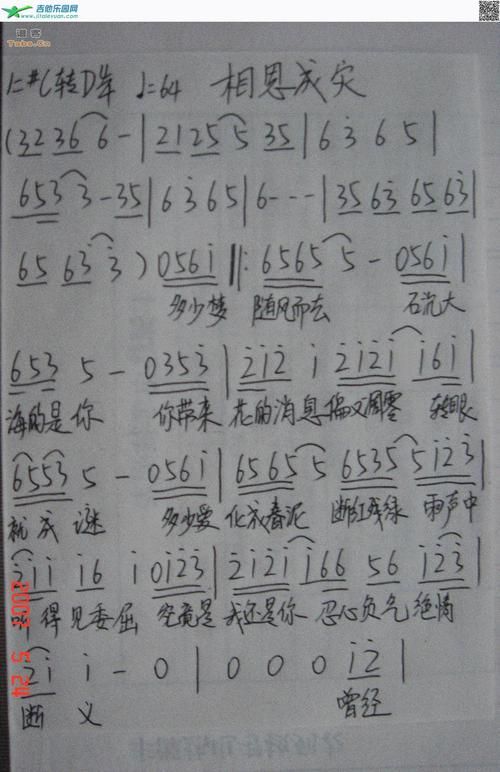 吉他乐园网
www.jitaleyuan.com
谱客
Tabs.Cn
1=#C转D 4/4 ♩=64 相思成灾
(32 36 6 - | 21 25 5 35 | 6 3̇ 6 5 |
653 3 - 35 | 6 3̇ 6 5 | 6 - - - | 35 63̇ 65 63̇ |
65 63̇ 3̇ ) 056i̇ ‖: 6565 5 - 056i̇ |
多少梦 随风而去 石沉大
653 5 - 0353̇ | 2̇i̇2̇ i̇ 2̇i̇2̇i̇ i̇6i̇ |
海的是你 你带来 花的消息 偏又凋零 转眼
6553 5 - 056i̇ | 6565 5 6535 5i̇2̇3̇ |
就成谜 多少爱 化成春泥 断红残绿 雨声中
2̇i̇i̇ i̇6 i̇ 0i̇2̇3̇ | 2̇i̇2̇i̇ i̇66 56 i̇2̇3̇ |
听得见委屈 究竟是 我还是你 忍心负气 绝情
2̇i̇ i̇ - 0 | 0 0 0 i̇2̇ |
断义 曾经